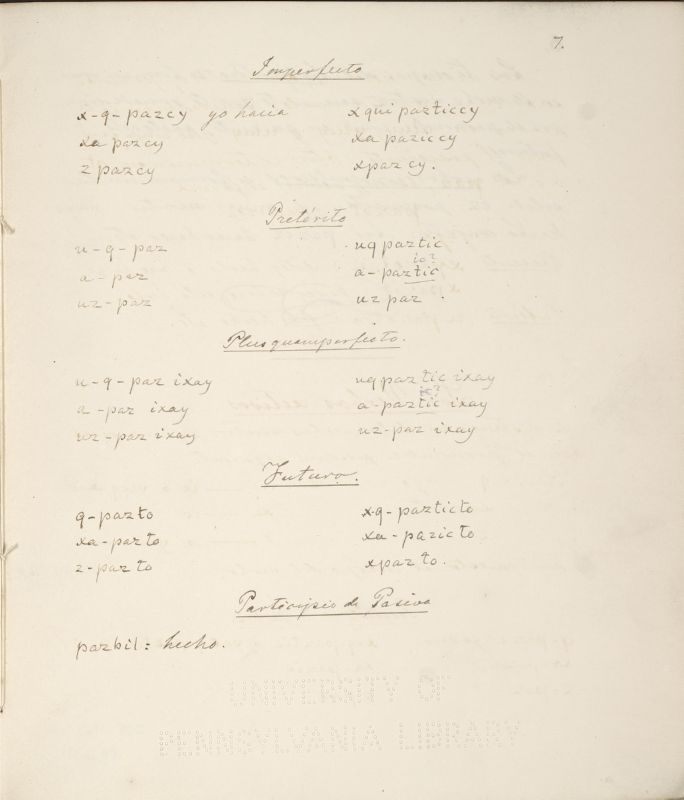 7.
Imperfecto
x-q-pazcy yo hacia xqui pazticcy
xa pazcy xa paziccy
z pazcy xpazcy.
Pretérito
u-q-paz uq paztic
ic?
a-paz a-paztic
uz-paz uz paz.
Plusquamperfecto.
u-q-paz ixay uq paztic ixay
ic?
a-paz ixay a-paztic ixay
uz-paz ixay uz-paz ixay
Futuro.
q-pazto xq-pazticto
xa-pazto xa-pazicto
z-pazto xpazto.
Participio de Pasiva
pazbil: hecho.
UNIVERSITY OF
PENNSYLVANIA LIBRARY